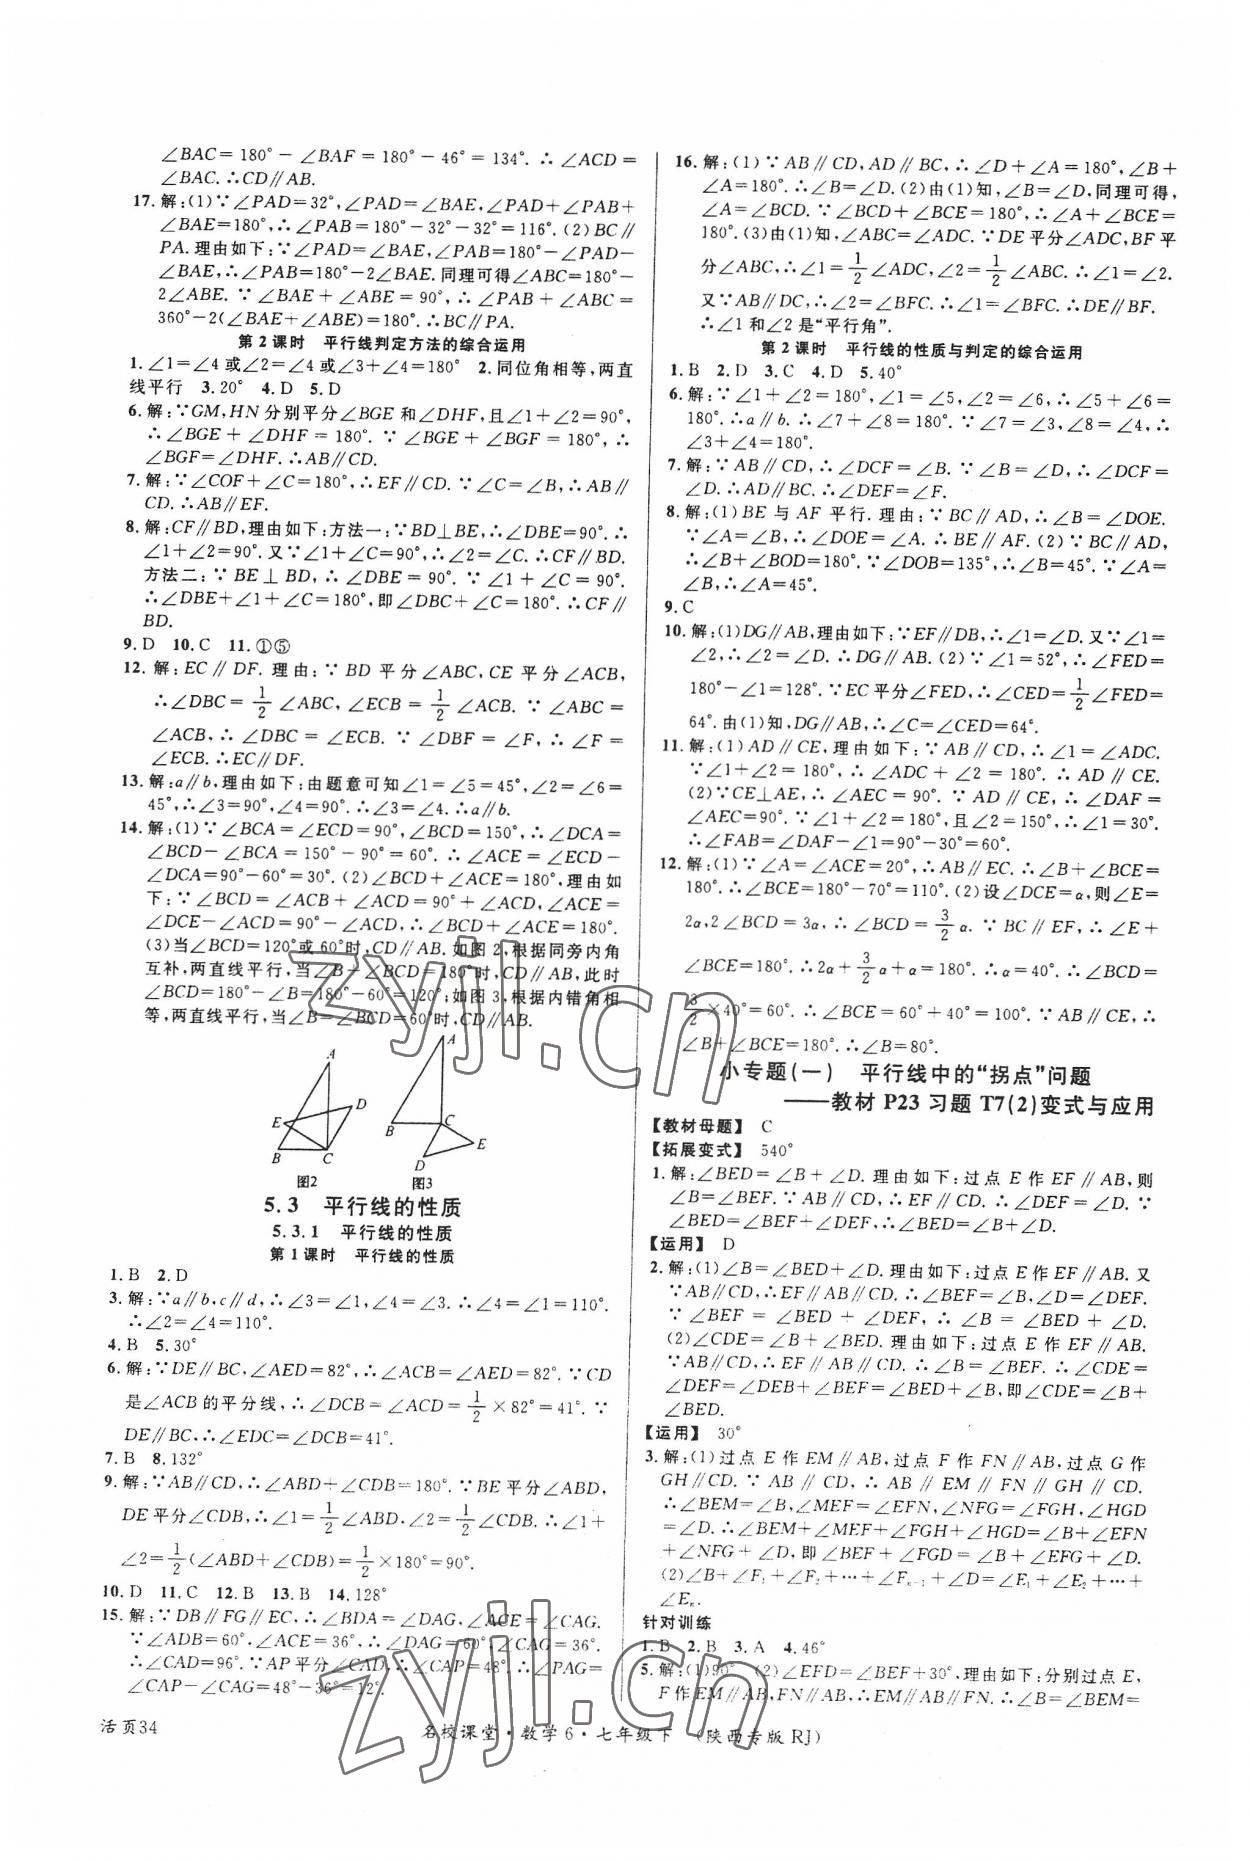 ∠BAC＝180°－∠BAF＝180°－46°＝134°.∴∠ACD＝
∠BAC.∴CD∥AB.
17.解:(1)∵∠PAD＝32°,∠PAD＝∠BAE,∠PAD＋∠PAB＋
∠BAE＝180°,∴∠PAB＝180°－32°－32°＝116°.(2)BC∥
PA.理由如下:∵∠PAD＝∠BAE,∠PAB＝180°－∠PAD－
∠BAE,∴∠PAB＝180°－2∠BAE.同理可得∠ABC＝180°－
2∠ABE.∵∠BAE＋∠ABE＝90°,∴∠PAB＋∠ABC＝
360°－2(∠BAE＋∠ABE)＝180°.∴BC∥PA.
第2课时 平行线判定方法的综合运用
1.∠1＝∠4或∠2＝∠4或∠3＋∠4＝180° 2.同位角相等,两直
线平行 3.20° 4.D 5.D
6.解:∵GM,HN分别平分∠BGE和∠DHF,且∠1＋∠2＝90°,
∴∠BGE＋∠DHF＝180°.∵∠BGE＋∠BGF＝180°,∴
∠BGF＝∠DHF.∴AB∥CD.
7.解:∵∠COF＋∠C＝180°,∴EF∥CD.∵∠C＝∠B,∴AB∥
CD.∴AB∥EF.
8.解:CF∥BD,理由如下:方法一:∵BD⊥BE,∴∠DBE＝90°.∴
∠1＋∠2＝90°.又∵∠1＋∠C＝90°,∴∠2＝∠C.∴CF∥BD.
方法二:∵BE⊥BD,∴∠DBE＝90°.∵∠1＋∠C＝90°.
∴∠DBE＋∠1＋∠C＝180°,即∠DBC＋∠C＝180°.∴CF∥
BD.
9.D 10.C 11.①⑤
12.解:EC∥DF.理由:∵BD平分∠ABC,CE平分∠ACB,
∴∠DBC＝1/2∠ABC,∠ECB＝1/2∠ACB.∵∠ABC＝
∠ACB,∴∠DBC＝∠ECB.∵∠DBF＝∠F,∴∠F＝
∠ECB.∴EC∥DF.
13.解:a∥b,理由如下:由题意可知∠1＝∠5＝45°,∠2＝∠6＝
45°,∴∠3＝90°,∠4＝90°.∴∠3＝∠4.∴a∥b.
14.解:(1)∵∠BCA＝∠ECD＝90°,∠BCD＝150°,∴∠DCA＝
∠BCD－∠BCA＝150°－90°＝60°.∴∠ACE＝∠ECD－
∠DCA＝90°－60°＝30°.(2)∠BCD＋∠ACE＝180°,理由如
下:∵∠BCD＝∠ACB＋∠ACD＝90°＋∠ACD,∠ACE＝
∠DCE－∠ACD＝90°－∠ACD,∴∠BCD＋∠ACE＝180°.
(3)当∠BCD＝120°或60°时,CD∥AB.如图2,根据同旁内角
互补,两直线平行,当∠B＋∠BCD＝180°时,CD∥AB,此时
∠BCD＝180°－∠B＝180°－60°＝120°;如图3,根据内错角相
等,两直线平行,当∠B＝∠BCD＝60°时,CD∥AB.
A
D
E
B
C
图2
A
B
C
E
D
图3
5.3 平行线的性质
5.3.1 平行线的性质
第1课时 平行线的性质
1.B 2.D
3.解:∵a∥b,c∥d,∴∠3＝∠1,∠4＝∠3.∴∠4＝∠1＝110°.
∴∠2＝∠4＝110°.
4.B 5.30°
6.解:∵DE∥BC,∠AED＝82°,∴∠ACB＝∠AED＝82°.∵CD
是∠ACB的平分线,∴∠DCB＝∠ACD＝1/2×82°＝41°.∵
DE∥BC,∴∠EDC＝∠DCB＝41°.
7.B 8.132°
9.解:∵AB∥CD,∴∠ABD＋∠CDB＝180°.∵BE平分∠ABD,
DE平分∠CDB,∴∠1＝1/2∠ABD,∠2＝1/2∠CDB.∴∠1＋
∠2＝1/2(∠ABD＋∠CDB)＝1/2×180°＝90°.
10.D 11.C 12.B 13.B 14.128°
15.解:∵DB∥FG∥EC,∴∠BDA＝∠DAG,∠ACE＝∠CAG.
∵∠ADB＝60°,∠ACE＝36°,∴∠DAG＝60°,∠CAG＝36°.
∴∠CAD＝96°.∵AP平分∠CAD,∴∠CAP＝48°.∴∠PAG＝
∠CAP－∠CAG＝48°－36°＝12°.
16.解:(1)∵AB∥CD,AD∥BC,∴∠D＋∠A＝180°,∠B＋
∠A＝180°.∴∠B＝∠D.(2)由(1)知,∠B＝∠D,同理可得,
∠A＝∠BCD.∵∠BCD＋∠BCE＝180°,∴∠A＋∠BCE＝
180°.(3)由(1)知,∠ABC＝∠ADC.∵DE平分∠ADC,BF平
分∠ABC,∴∠1＝1/2∠ADC,∠2＝1/2∠ABC.∴∠1＝∠2.
又∵AB∥DC,∴∠2＝∠BFC.∴∠1＝∠BFC.∴DE∥BF.
∴∠1和∠2是“平行角”.
第2课时 平行线的性质与判定的综合运用
1.B 2.D 3.C 4.D 5.40°
6.解:∵∠1＋∠2＝180°,∠1＝∠5,∠2＝∠6,∴∠5＋∠6＝
180°.∴a∥b.∴∠7＋∠8＝180°.∵∠7＝∠3,∠8＝∠4,∴
∠3＋∠4＝180°.
7.解:∵AB∥CD,∴∠DCF＝∠B.∵∠B＝∠D,∴∠DCF＝
∠D.∴AD∥BC.∴∠DEF＝∠F.
8.解:(1)BE与AF平行.理由:∵BC∥AD,∴∠B＝∠DOE.
∵∠A＝∠B,∴∠DOE＝∠A.∴BE∥AF.(2)∵BC∥AD,
∴∠B＋∠BOD＝180°.∵∠DOB＝135°,∴∠B＝45°.∵∠A＝
∠B,∴∠A＝45°.
9.C
10.解:(1)DG∥AB,理由如下:∵EF∥DB,∴∠1＝∠D.又∵∠1＝
∠2,∴∠2＝∠D.∴DG∥AB.(2)∵∠1＝52°,∴∠FED＝
180°－∠1＝128°.∵EC平分∠FED,∴∠CED＝1/2∠FED＝
64°.由(1)知,DG∥AB,∴∠C＝∠CED＝64°.
11.解:(1)AD∥CE,理由如下:∵AB∥CD,∴∠1＝∠ADC.
∵∠1＋∠2＝180°,∴∠ADC＋∠2＝180°.∴AD∥CE.
(2)∵CE⊥AE,∴∠AEC＝90°.∵AD∥CE,∴∠DAF＝
∠AEC＝90°.∵∠1＋∠2＝180°,且∠2＝150°,∴∠1＝30°.
∴∠FAB＝∠DAF－∠1＝90°－30°＝60°.
12.解:(1)∵∠A＝∠ACE＝20°,∴AB∥EC.∴∠B＋∠BCE＝
180°.∴∠BCE＝180°－70°＝110°.(2)设∠DCE＝α,则∠E＝
2α,2∠BCD＝3α,∴∠BCD＝3/2α.∵BC∥EF,∴∠E＋
∠BCE＝180°.∴2α＋3/2α＋α＝180°.∴α＝40°.∴∠BCD＝
3/2×40°＝60°.∴∠BCE＝60°＋40°＝100°.∵AB∥CE,∴
∠B＋∠BCE＝180°.∴∠B＝80°.
小专题(一) 平行线中的“拐点”问题
——教材P23习题T7(2)变式与应用
【教材母题】 C
【拓展变式】 540°
1.解:∠BED＝∠B＋∠D.理由如下:过点E作EF∥AB,则
∠BEF＝∠B.∵AB∥CD,∴EF∥CD.∴∠DEF＝∠D.∵
∠BED＝∠BEF＋∠DEF,∴∠BED＝∠B＋∠D.
【运用】 D
2.解:(1)∠B＝∠BED＋∠D.理由如下:过点E作EF∥AB.又
∵AB∥CD,∴EF∥AB∥CD.∴∠BEF＝∠B,∠D＝∠DEF.
∵∠BEF＝∠BED＋∠DEF,∴∠B＝∠BED＋∠D.
(2)∠CDE＝∠B＋∠BED.理由如下:过点E作EF∥AB.
∵AB∥CD,∴EF∥AB∥CD.∴∠B＝∠BEF.∴∠CDE＝
∠DEF＝∠DEB＋∠BEF＝∠BED＋∠B,即∠CDE＝∠B＋
∠BED.
【运用】 30°
3.解:(1)过点E作EM∥AB,过点F作FN∥AB,过点G作
GH∥CD.∵AB∥CD,∴AB∥EM∥FN∥GH∥CD.
∴∠BEM＝∠B,∠MEF＝∠EFN,∠NFG＝∠FGH,∠HGD
＝∠D.∴∠BEM＋∠MEF＋∠FGH＋∠HGD＝∠B＋∠EFN
＋∠NFG＋∠D,即∠BEF＋∠FGD＝∠B＋∠EFG＋∠D.
(2)∠B＋∠F₁＋∠F₂＋…＋∠Fₙ₋₁＋∠D＝∠E₁＋∠E₂＋…＋
∠Eₙ.
针对训练
1.B 2.B 3.A 4.46°
5.解:(1)90° (2)∠EFD＝∠BEF＋30°,理由如下:分别过点E,
F作EM∥AB,FN∥AB,∴EM∥AB∥FN.∴∠B＝∠BEM＝
活页34
名校课堂·数学6·七年级下 (陕西专版RJ)
zyjl.cn
zyjl.cn